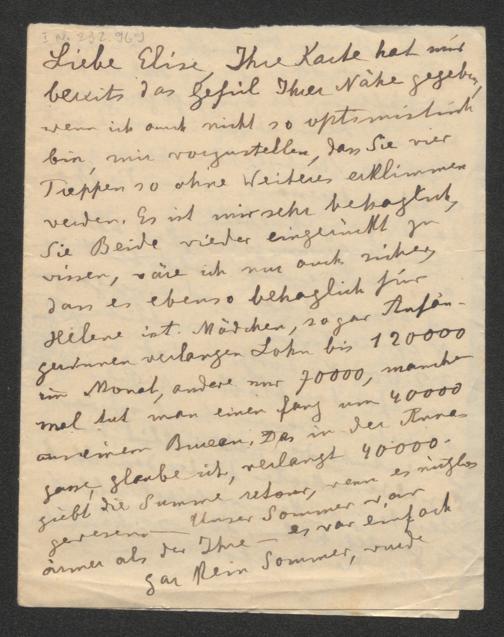 I. N. 232.969
Liebe Elise, Ihre Karte hat mir
bereits das Gefül Ihrer Nähe gegeben,
wenn ich auch nicht so optimistisch
bin, mir vorzustellen, dass Sie vier
Treppen so ohne Weiteres erklimmen
werden. Es ist mir sehr behaglich,
Sie Beide wieder eingerückt zu
wissen, wäre ich nur auch sicher,
dass es ebenso behaglich für
Helene ist. Mädchen, sogar Anfän-
gerinnen verlangen Lohn bis 120000
im Monat, andere nur 70000, manche
mal tut man einen fang um 40000
aus einem Bureau. Das in der Anna
gasse, glaube ich, verlangt 40000.
giebt die Summe retour, wenn es nutzlos
gewesen — Unser Sommer war
ärmer als der Ihre — es war einfach
gar kein Sommer, wurde